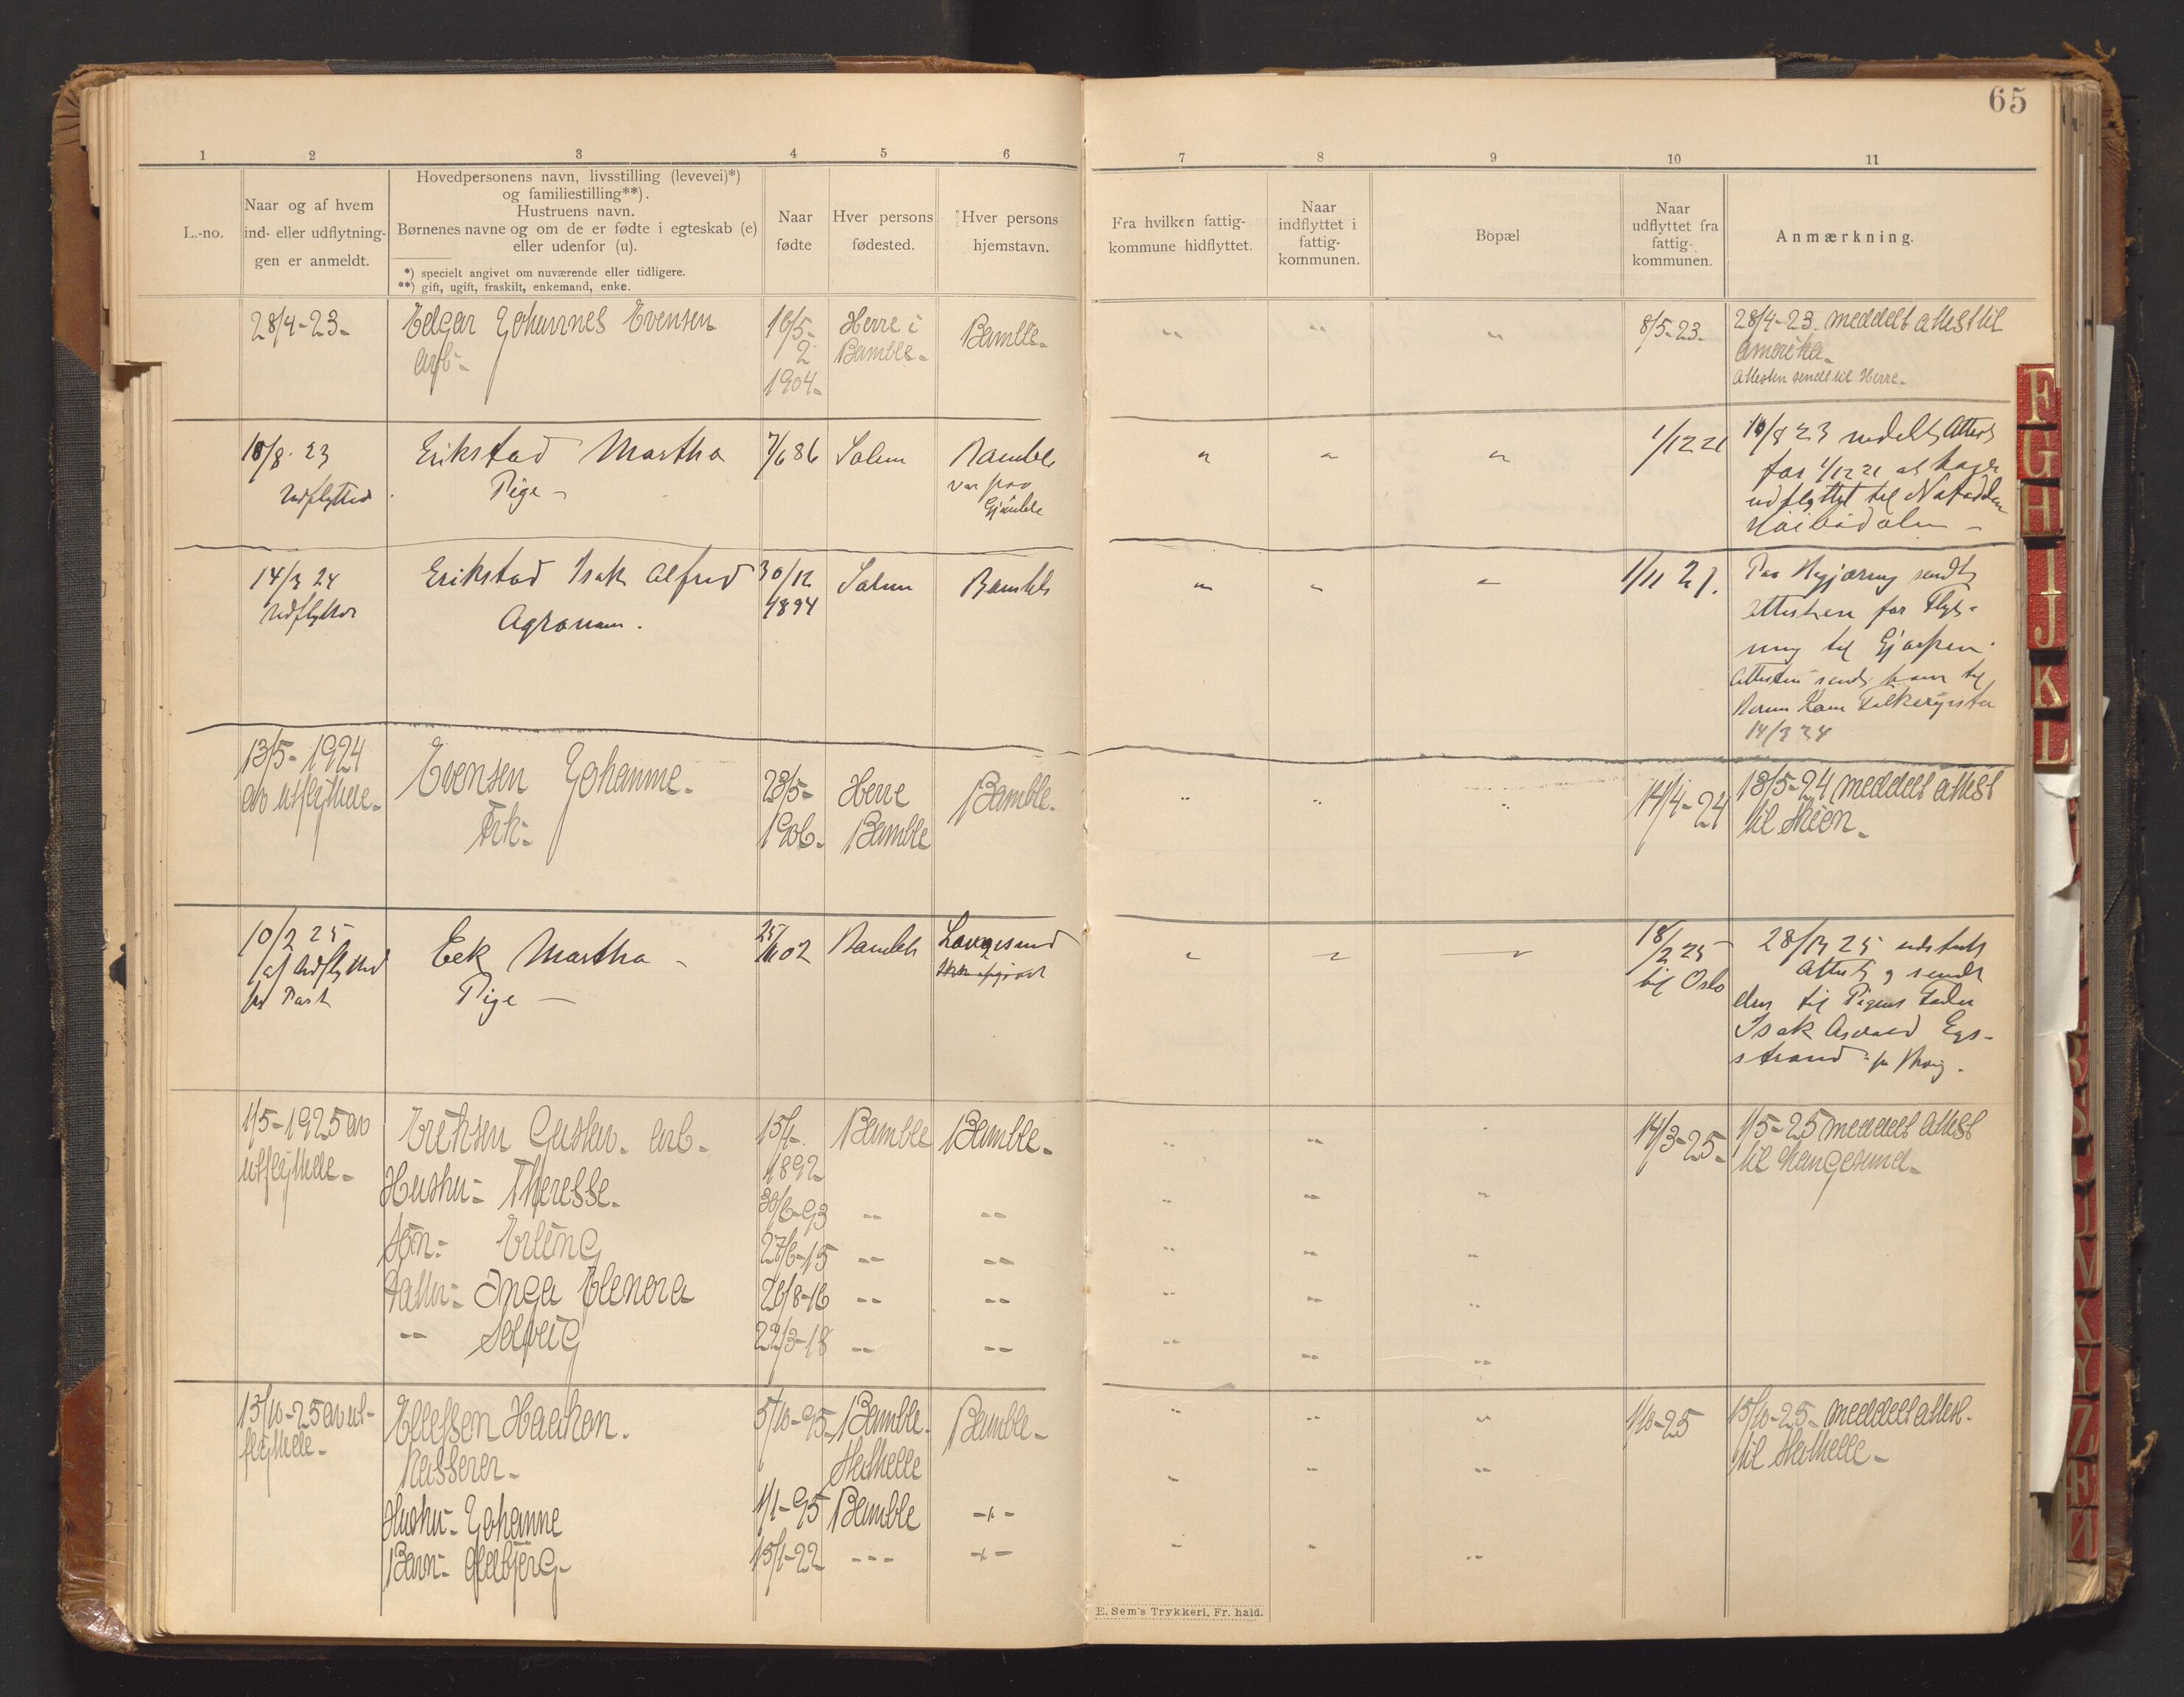 65
1 2 3 4 5 6 7 8 9 10 11
L.-no.
Naar og af hvem
ind- eller udflytning-
gen er anmeldt.
Hovedpersonens navn, livsstilling (levevei)*)
og familiestilling**).
Hustruens navn.
Børnenes navne og om de er fødte i egteskab (e)
eller udenfor (u).
*) specielt angivet om nuværende eller tidligere.
**) gift, ugift, fraskilt, enkemand, enke.
Naar
fødte
Hver persons
fødested.
Hver persons
hjemstavn.
Fra hvilken fattig-
kommune hidflyttet.
Naar
indflyttet i
fattig-
kommunen.
Bopæl
Naar
udflyttet fra
fattig-
kommunen.
Anmærkning.
28/4-23- Edgar Johannes Evensen 10/5- Herre i Bamble- " " " 8/5-23- 28/4-23. meddelt attest til
arb- 2 Bamble- Amerika-
1904- Attesten sendt til Herre-
10/8. 23 Erikstad Martha 7/6 86 Solum Bamble " " " 1/12 21 10/8 23 Attest
Udflytted Pige - var paa for 1/12 21 at
udflyttet til Notodden
14/3 24 Erikstad Isak Alfred 30/12 Solum Bamble " " " 1/11 21. Paa sendt
Agronom. 1894 Attesten for Flyt-
ning til Gjerpen.
Attesten sendt ham til
Folkeregister
14/3 24
13/5-1924 Evensen Johanne- 23/5- Herre Bamble- " " " 14/4-24 13/5-24 meddelt attest
av utflyttede- Frk- 1906- Bamble til Skien-
10/2 25 Eek Martha - 25/ 02 Bamble Langesund " " " 18/2 25 28/ 25 udstedt
af Udflytted Pige - til Oslo Attest og sendt
pr Post den til Pigens Fader
Isak Eges-
strand
1/5-1925 av Eriksen Gustav- arb- 15/1- Bamble Bamble- " " " 14/3-25- 1/5-25 meddelt attest
utflyttede- 1892- til Langesund-
Hustru- Theresse- 30/6-93 " " " " "
Søn- Erling 27/6-15 " " " " "
Datter- Inga Elenora 26/8-16 " " " " "
" Solveig 22/3-18 " " " " "
13/10-25 av ut- Ellefsen Haakon. 5/10-95 Bamble- Bamble- " " " 1/10-25 15/10-25- meddelt attest-
flyttede- Kasserer- Stathelle til Stathelle-
Hustru- Johanne 1/1-95 Bamble -"- " " "
Barn- 15/1-22 - - - -"- " " "
E. Sem's Trykkeri, Fr. hald.
F
G
H
I
J
K
L
V
X
Y
Z
Æ
Ø